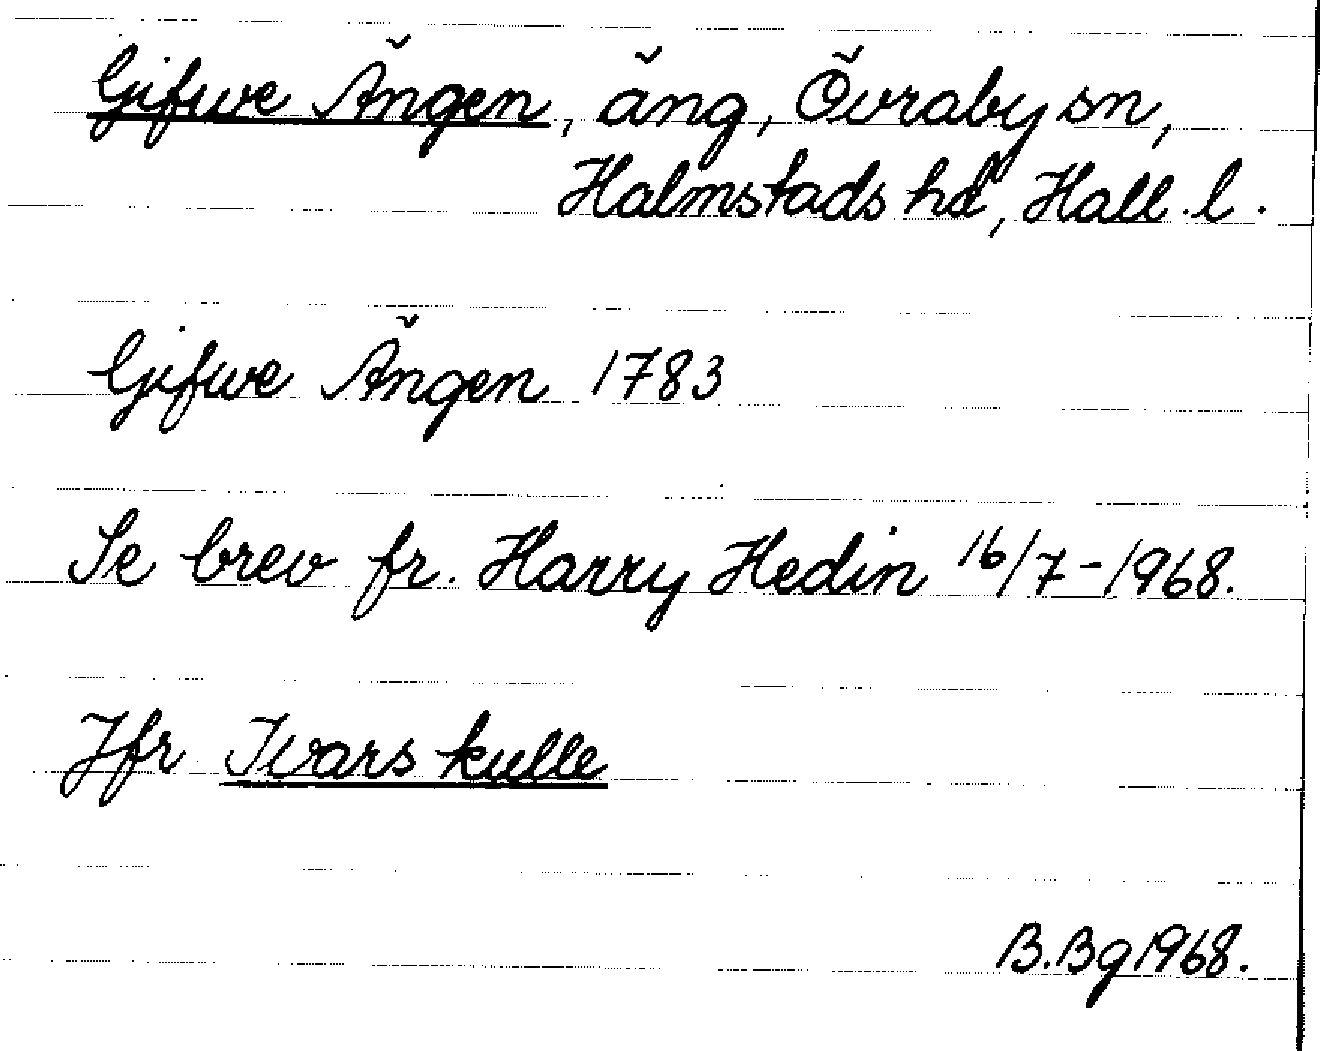 Gifwe Ängen, äng, Övraby sn,
Halmstads hd, Hall. l.
Gifwe Ängen 1783
Se brev fr. Harry Hedin 16/7-1968.
Jfr Ivars kulle
B.Bg 1968.